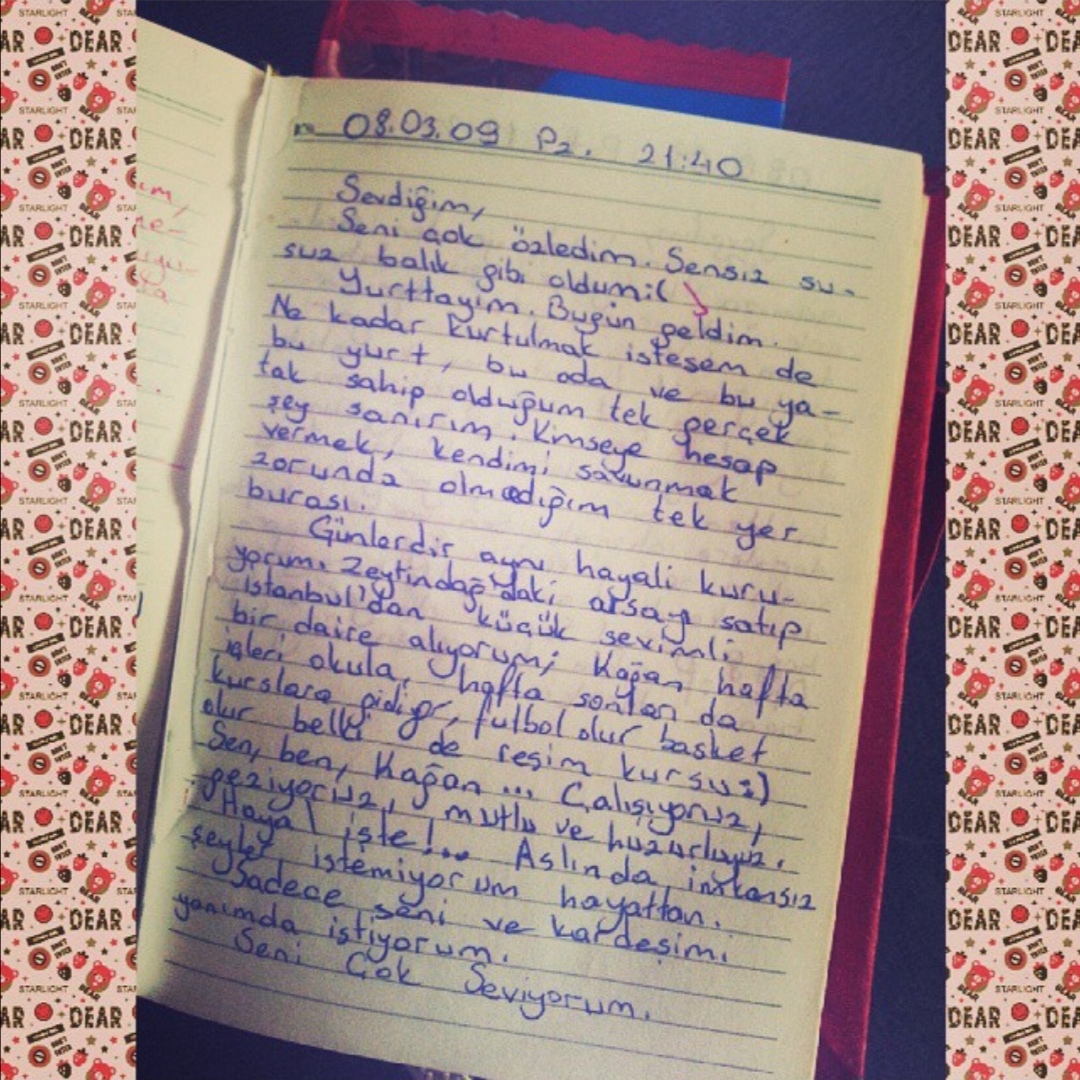 08.03.09 Pz. 21:40
Sevdiğim,
Seni çok özledim. Sensiz su-
suz balık gibi oldum:(
Yurttayım. Bugün geldim.
Ne kadar kurtulmak istesem de
bu yurt, bu oda ve bu ya-
tak sahip olduğum tek gerçek
şey sanırım. Kimseye hesap
vermek, kendimi savunmak
zorunda olmadığım tek yer
burası.
Günlerdir aynı hayali kuru-
yorum. Zeytindağ'daki arsayı satıp
İstanbul'dan küçük sevimli
bir daire alıyorum; Kağan hafta
içleri okula, hafta sonları da
kurslara gidiyor, futbol olur basket
olur belki de resim kursu:)
Sen, ben, Kağan... Çalışıyoruz,
geziyoruz, mutlu ve huzurluyuz.
Hayal işte!... Aslında imkansız
şeyler istemiyorum hayattan.
Sadece seni ve kardeşimi
yanımda istiyorum.
Seni Çok Seviyorum.
DEAR
STARLIGHT
BEAR
DON'T
ENTER